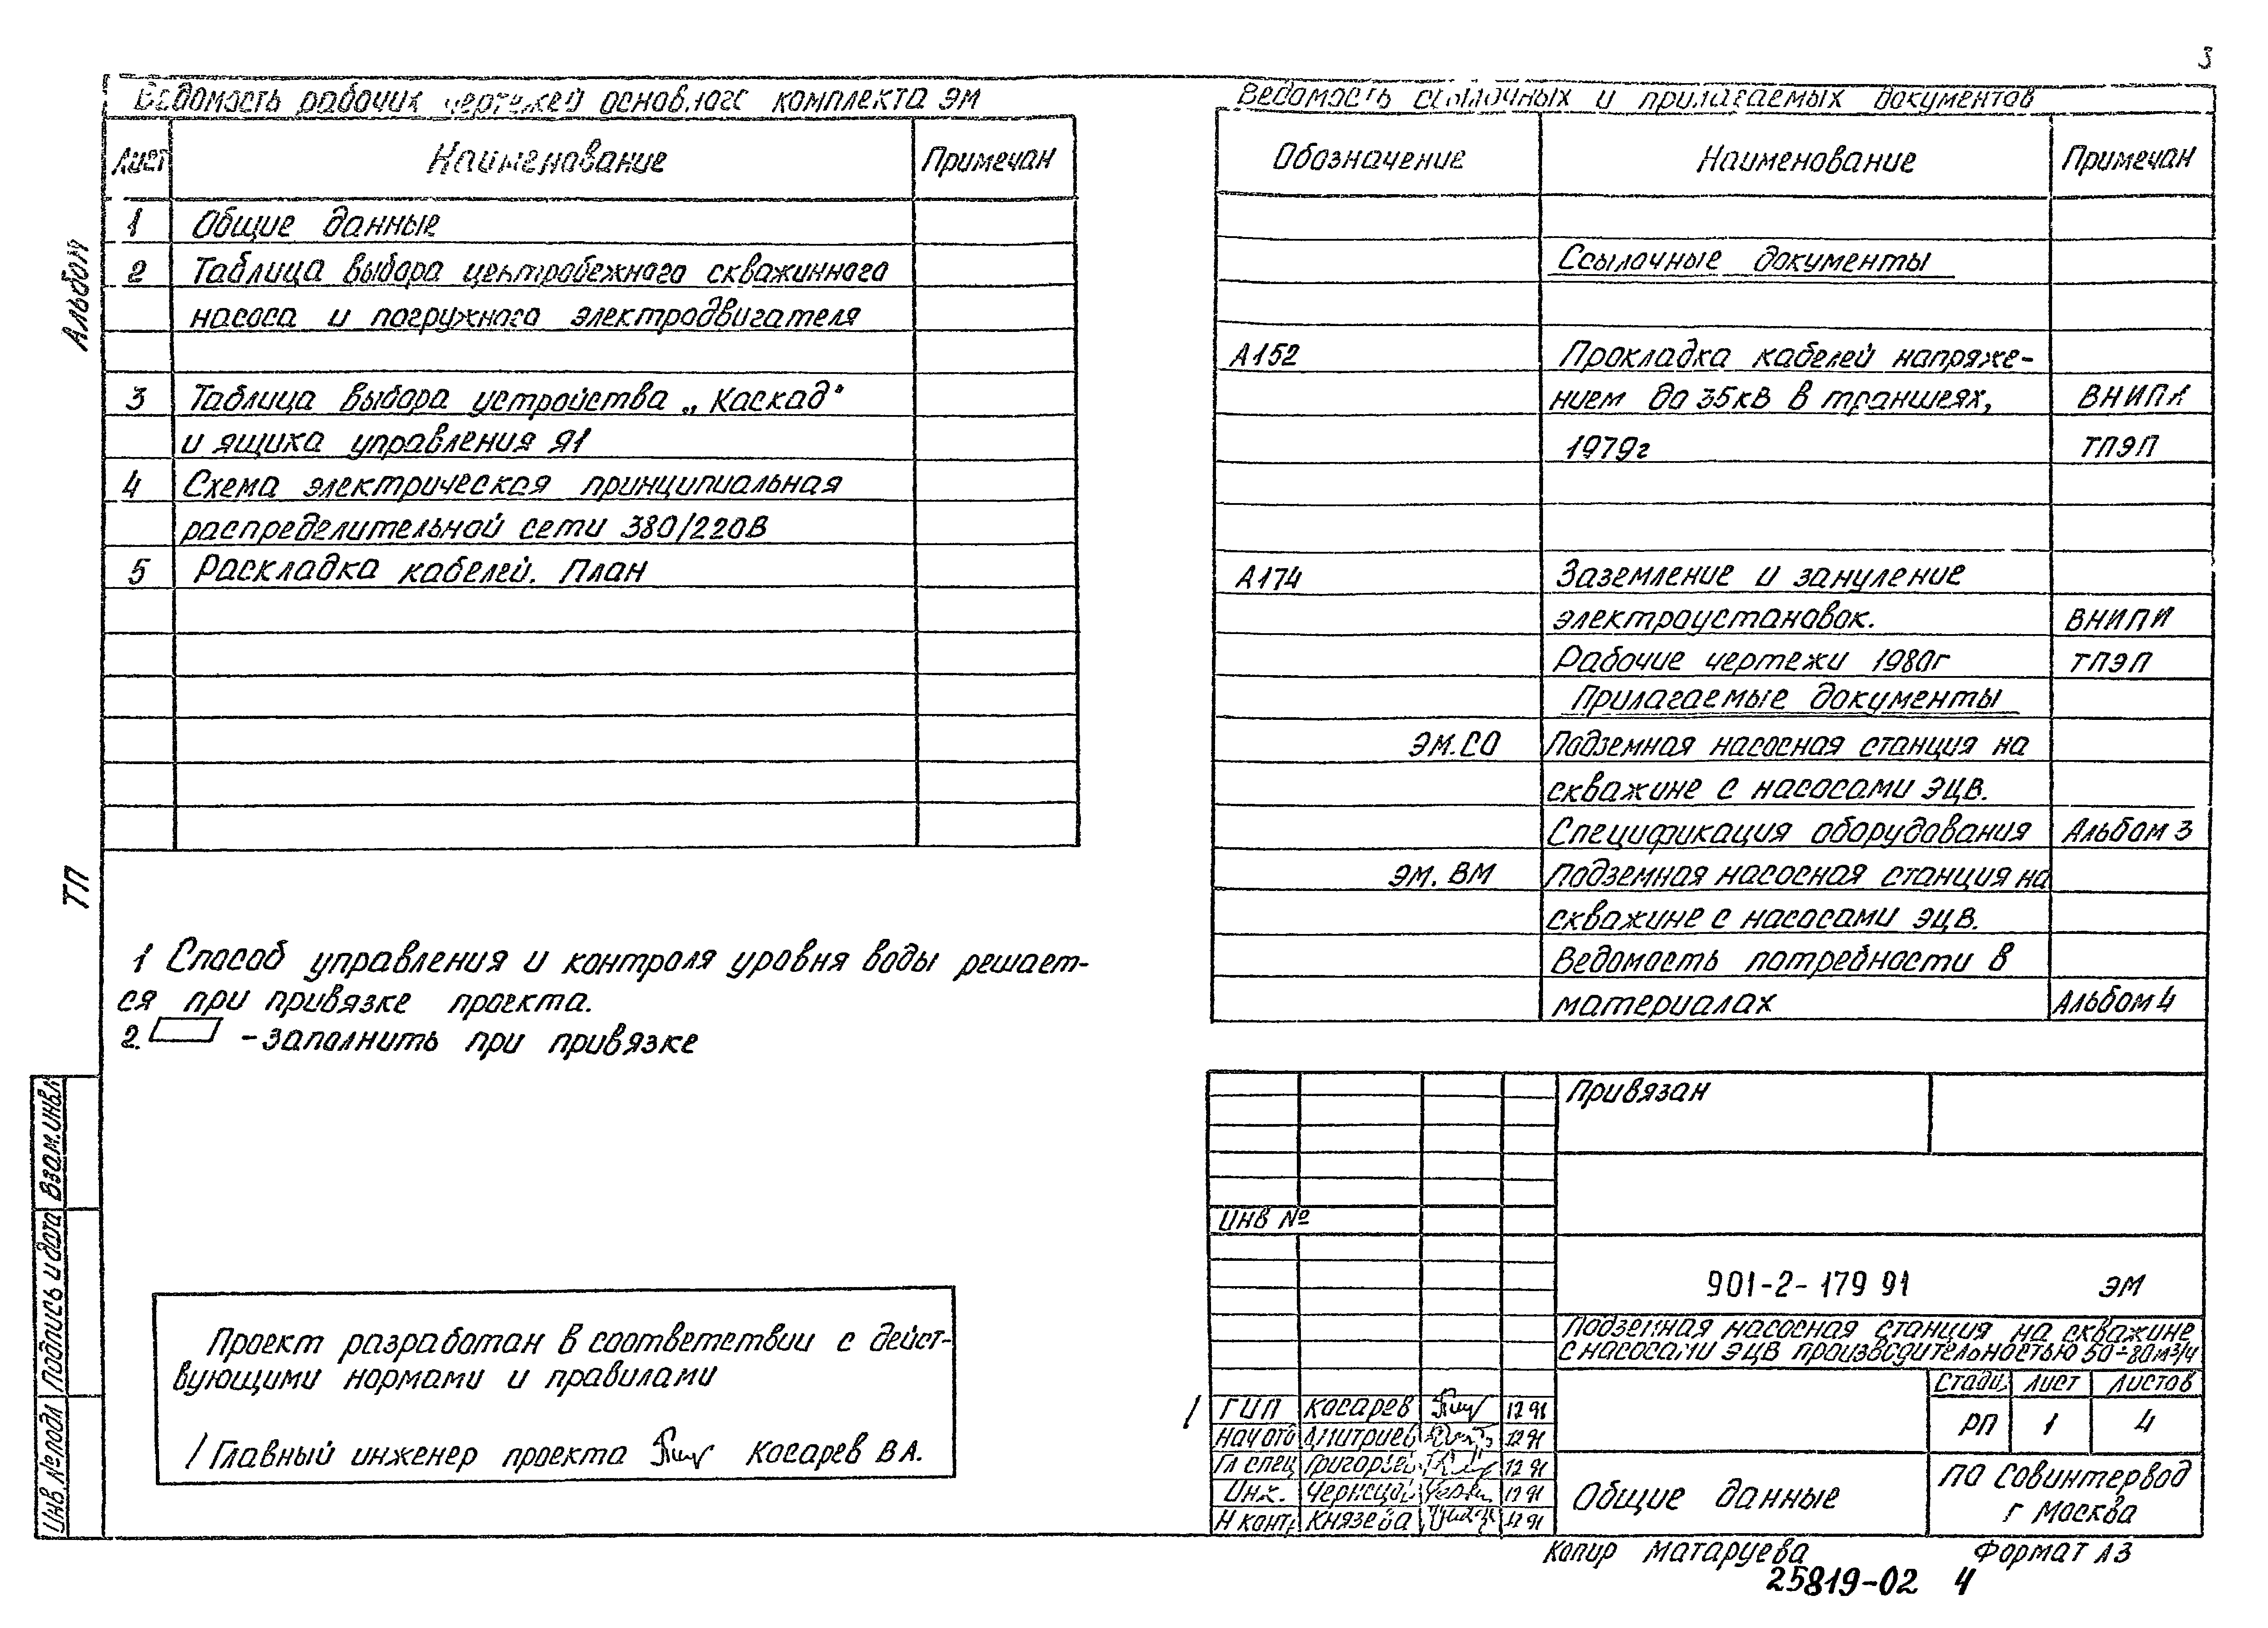 3
Ведомость рабочих чертежей основного комплекта ЭМ
Лист Наименование Примечан
1 Общие данные
2 Таблица выбора центробежного скважинного
насоса и погружного электродвигателя
3 Таблица выбора устройства „Каскад"
и ящика управления Я1
4 Схема электрическая принципиальная
распределительной сети 380/220В
5 Раскладка кабелей. План
Альбом
ТП
1 Способ управления и контроля уровня воды решает-
ся при привязке проекта.
2. - заполнить при привязке
Проект разработан в соответствии с дейст-
вующими нормами и правилами
Главный инженер проекта Косарев В А.
Взам.инв.
Подпись и дата
Инв № подл
Ведомость ссылочных и прилагаемых документов
Обозначение Наименование Примечан
Ссылочные документы
А152 Прокладка кабелей напряже-
нием до 35кВ в траншеях, ВНИПИ
1979г ТПЭП
А174 Заземление и зануление
электроустановок. ВНИПИ
Рабочие чертежи 1980г ТПЭП
Прилагаемые документы
ЭМ.СО Подземная насосная станция на
скважине с насосами ЭЦВ.
Спецификация оборудования Альбом 3
ЭМ. ВМ Подземная насосная станция на
скважине с насосами ЭЦВ.
Ведомость потребности в
материалах Альбом 4
Привязан
Инв №
901-2-179 91 ЭМ
Подземная насосная станция на скважине
с насосами ЭЦВ производительностью 50÷80м³/ч
Стади. Лист Листов
РП 1 4
ГИП Косарев 12 91
Нач отд Дмитриев 12 91
Гл спец Григорьев 12 91
Инж. 12 91
Н контр Князева 12 91
Общие данные
ПО Совинтервод
г Москва
Копир Матаруева Формат А3
25819-02 4